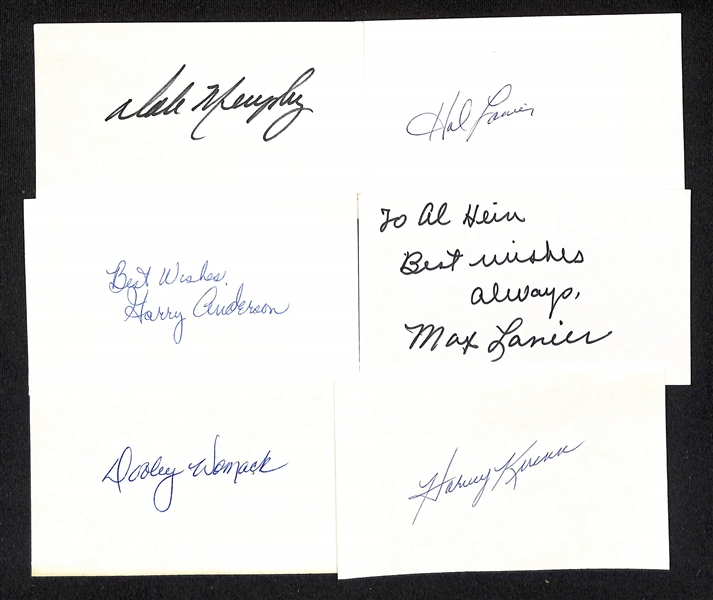 Dale Murphy
Hal Lanier
Best Wishes,
Harry Anderson
To Al Hein
Best wishes
always,
Max Lanier
Dooley Womack
Harvey Kuenn